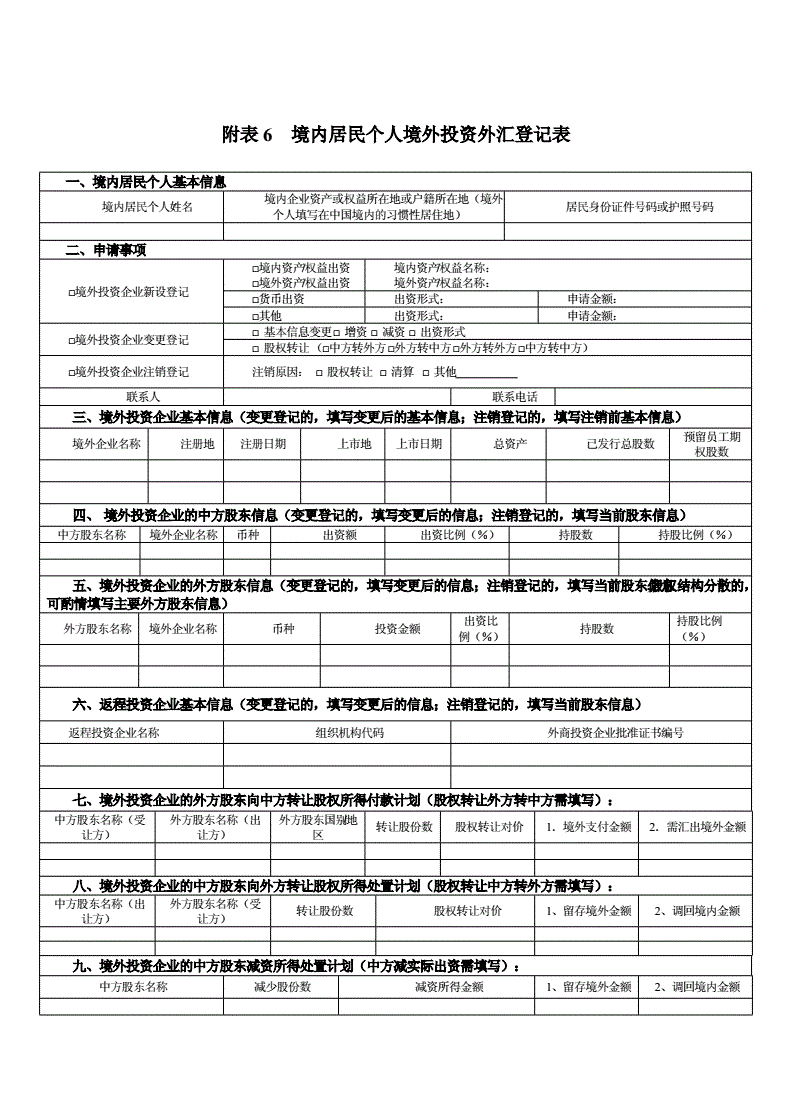 附表 6 境内居民个人境外投资外汇登记表
一、境内居民个人基本信息
境内居民个人姓名
境内企业资产或权益所在地或户籍所在地（境外
个人填写在中国境内的习惯性居住地）
居民身份证件号码或护照号码
二、申请事项
□境外投资企业新设登记
□境内资产/权益出资 境内资产/权益名称：
□境外资产/权益出资 境外资产/权益名称：
□货币出资 出资形式： 申请金额：
□其他 出资形式： 申请金额：
□境外投资企业变更登记
□ 基本信息变更□ 增资 □ 减资 □ 出资形式
□ 股权转让（□中方转外方□外方转中方□外方转外方□中方转中方）
□境外投资企业注销登记 注销原因： □ 股权转让 □ 清算 □ 其他
联系人 联系电话
三、境外投资企业基本信息（变更登记的，填写变更后的基本信息；注销登记的，填写注销前基本信息）
境外企业名称 注册地 注册日期 上市地 上市日期 总资产 已发行总股数 预留员工期
权股数
四、 境外投资企业的中方股东信息（变更登记的，填写变更后的信息；注销登记的，填写当前股东信息）
中方股东名称 境外企业名称 币种 出资额 出资比例（%） 持股数 持股比例（%）
五、境外投资企业的外方股东信息（变更登记的，填写变更后的信息；注销登记的，填写当前股东 股权结构分散的，
可酌情填写主要外方股东信息）
外方股东名称 境外企业名称 币种 投资金额 出资比
例（%） 持股数 持股比例
（%）
六、返程投资企业基本信息（变更登记的，填写变更后的信息；注销登记的，填写当前股东信息）
返程投资企业名称 组织机构代码 外商投资企业批准证书编号
七、境外投资企业的外方股东向中方转让股权所得付款计划（股权转让外方转中方需填写）：
中方股东名称（受
让方）
外方股东名称（出
让方）
外方股东国别/地
区
转让股份数 股权转让对价 1．境外支付金额 2．需汇出境外金额
八、境外投资企业的中方股东向外方转让股权所得处置计划（股权转让中方转外方需填写）：
中方股东名称（出
让方）
外方股东名称（受
让方）
转让股份数 股权转让对价 1、留存境外金额 2、调回境内金额
九、境外投资企业的中方股东减资所得处置计划（中方减实际出资需填写）：
中方股东名称 减少股份数 减资所得金额 1、留存境外金额 2、调回境内金额